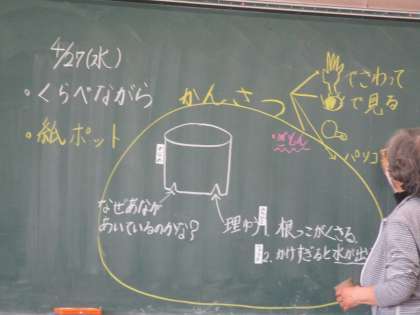 4/27(水)
・くらべながら
・紙ポット
かんさつ
でさわって
で見る
パソコ
なぜあなが
あいているのかな?
理由
根っこがくさる
2. かけすぎると水が出